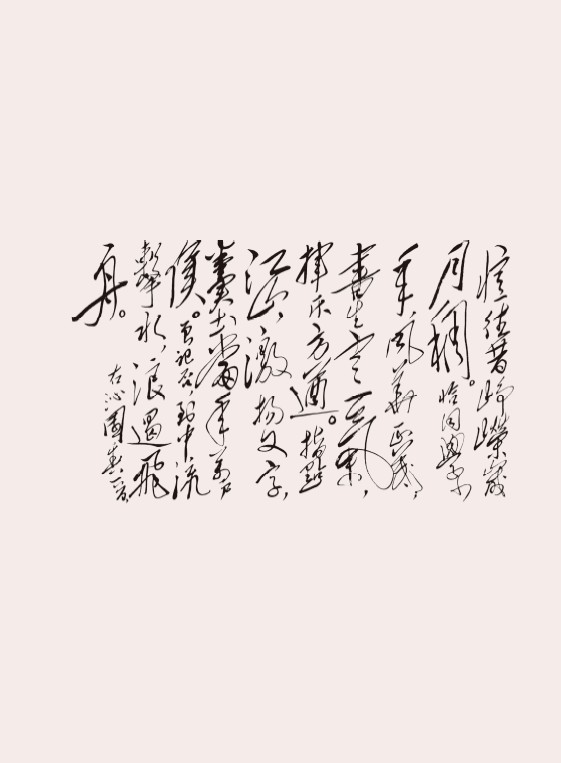 憶往昔崢嶸歲
月稠。恰同學少
年風華正茂,
書生意氣,
揮斥方遒。指點
江山,激揚文字,
糞土當年萬戶
侯。曾記否,到中流
擊水,浪遏飛
舟。
右沁園春